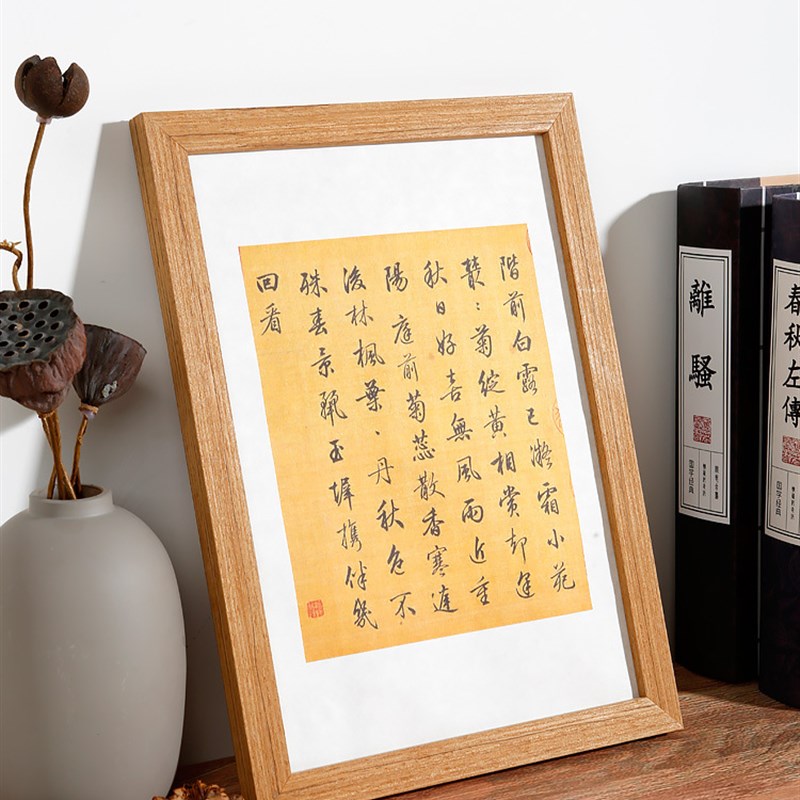 階前白露已凝霜小苑
叢〻菊綻黃相賞却逢
秋日好喜無風雨近重
陽庭前菊蕊散香寒
後林楓葉〻丹秋色不
殊春景麗玉墀携伴幾
回看
離騷
國学经典
春秋左傳
國学经典